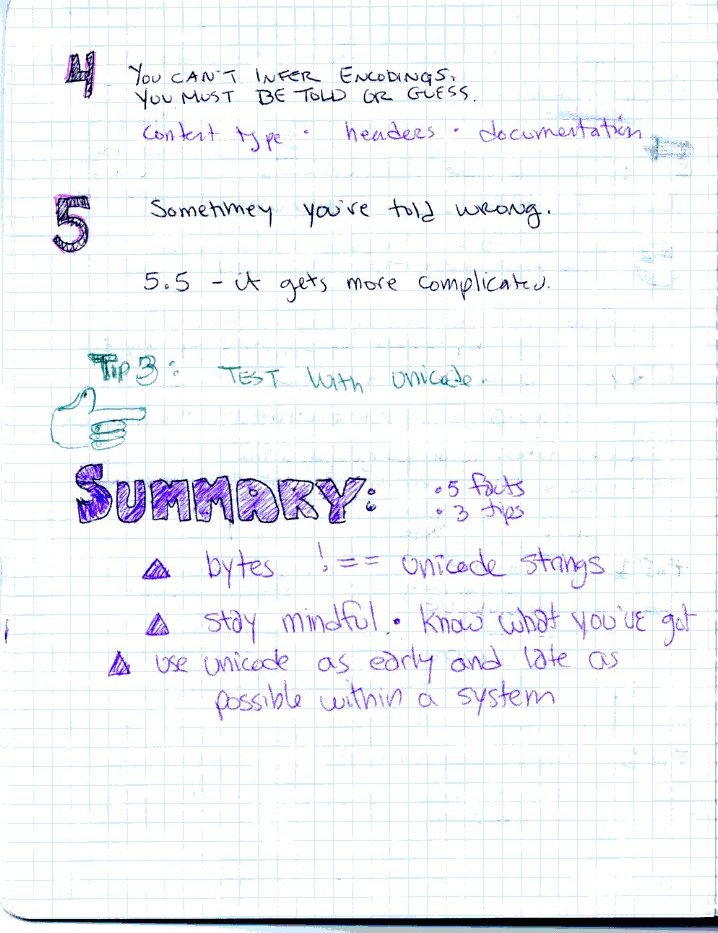 4 YOU CAN'T INFER ENCODINGS.
YOU MUST BE TOLD OR GUESS.
content type · headers · documentation
5 Sometimes you're told wrong.
5.5 - it gets more complicated.
TIP 3: TEST with unicode.
SUMMARY:
· 5 facts
· 3 tips
bytes !== unicode strings
stay mindful. · know what you've got
use unicode as early and late as
possible within a system